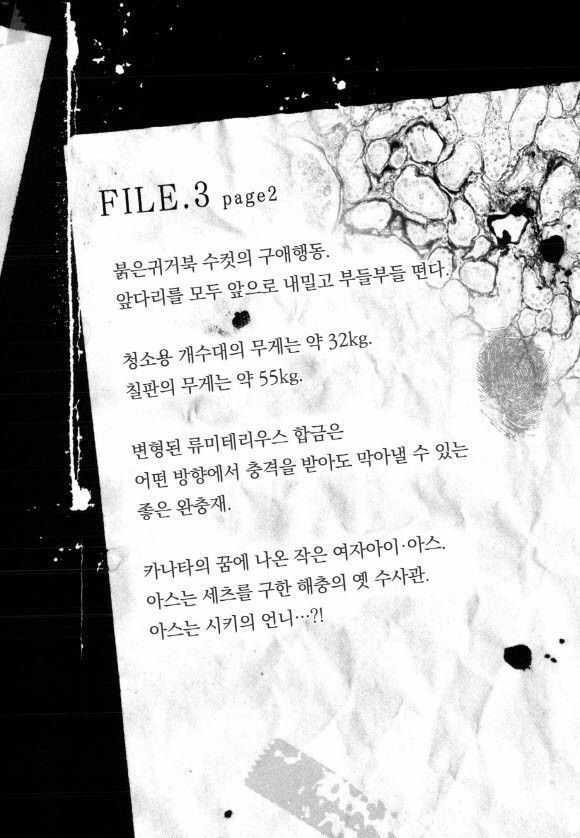 FILE.3 page2
붉은귀거북 수컷의 구애행동.
앞다리를 모두 앞으로 내밀고 부들부들 떤다.
청소용 개수대의 무게는 약 32kg.
칠판의 무게는 약 55kg.
변형된 류미테리우스 합금은
어떤 방향에서 충격을 받아도 막아낼 수 있는
좋은 완충재.
카나타의 꿈에 나온 작은 여자아이·아스.
아스는 세츠를 구한 해충의 옛 수사관.
아스는 시키의 언니…?!